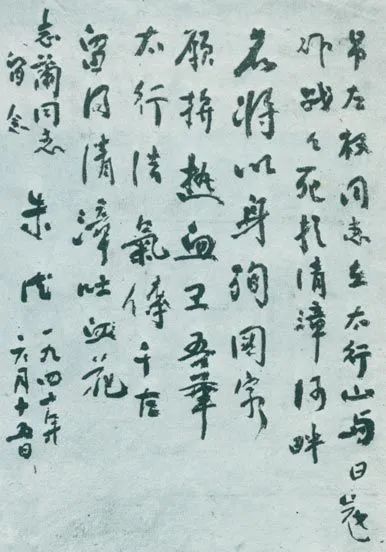 吊左权同志在太行山与日寇
作战々死於清漳河畔
名将以身殉国家
願拚热血卫吾華
太行浩氣傳千古
留得清漳吐血花
志蘭同志
留念
朱德 一九四二年
六月十五日